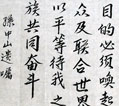 目的必須喚起
众及联合世界
以平等待我之
族共同奋斗
孫中山遺囑